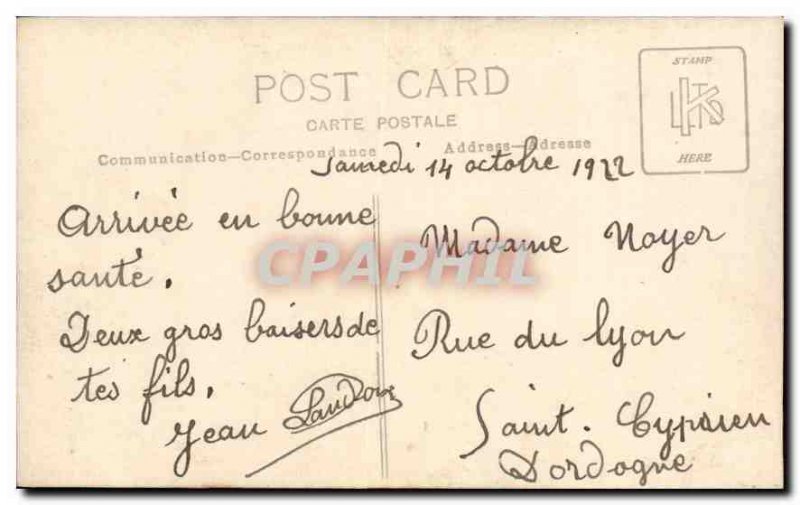 POST CARD
CARTE POSTALE
Communication—Correspondance
Address—Adresse
STAMP
HERE
Samedi 14 octobre 1922
Arrivée en bonne
santé.
Deux gros baisers de
tes fils.
Jean
Madame Noyer
Rue du Lyon
Saint. Cyprien
Dordogne
CPAPHIL